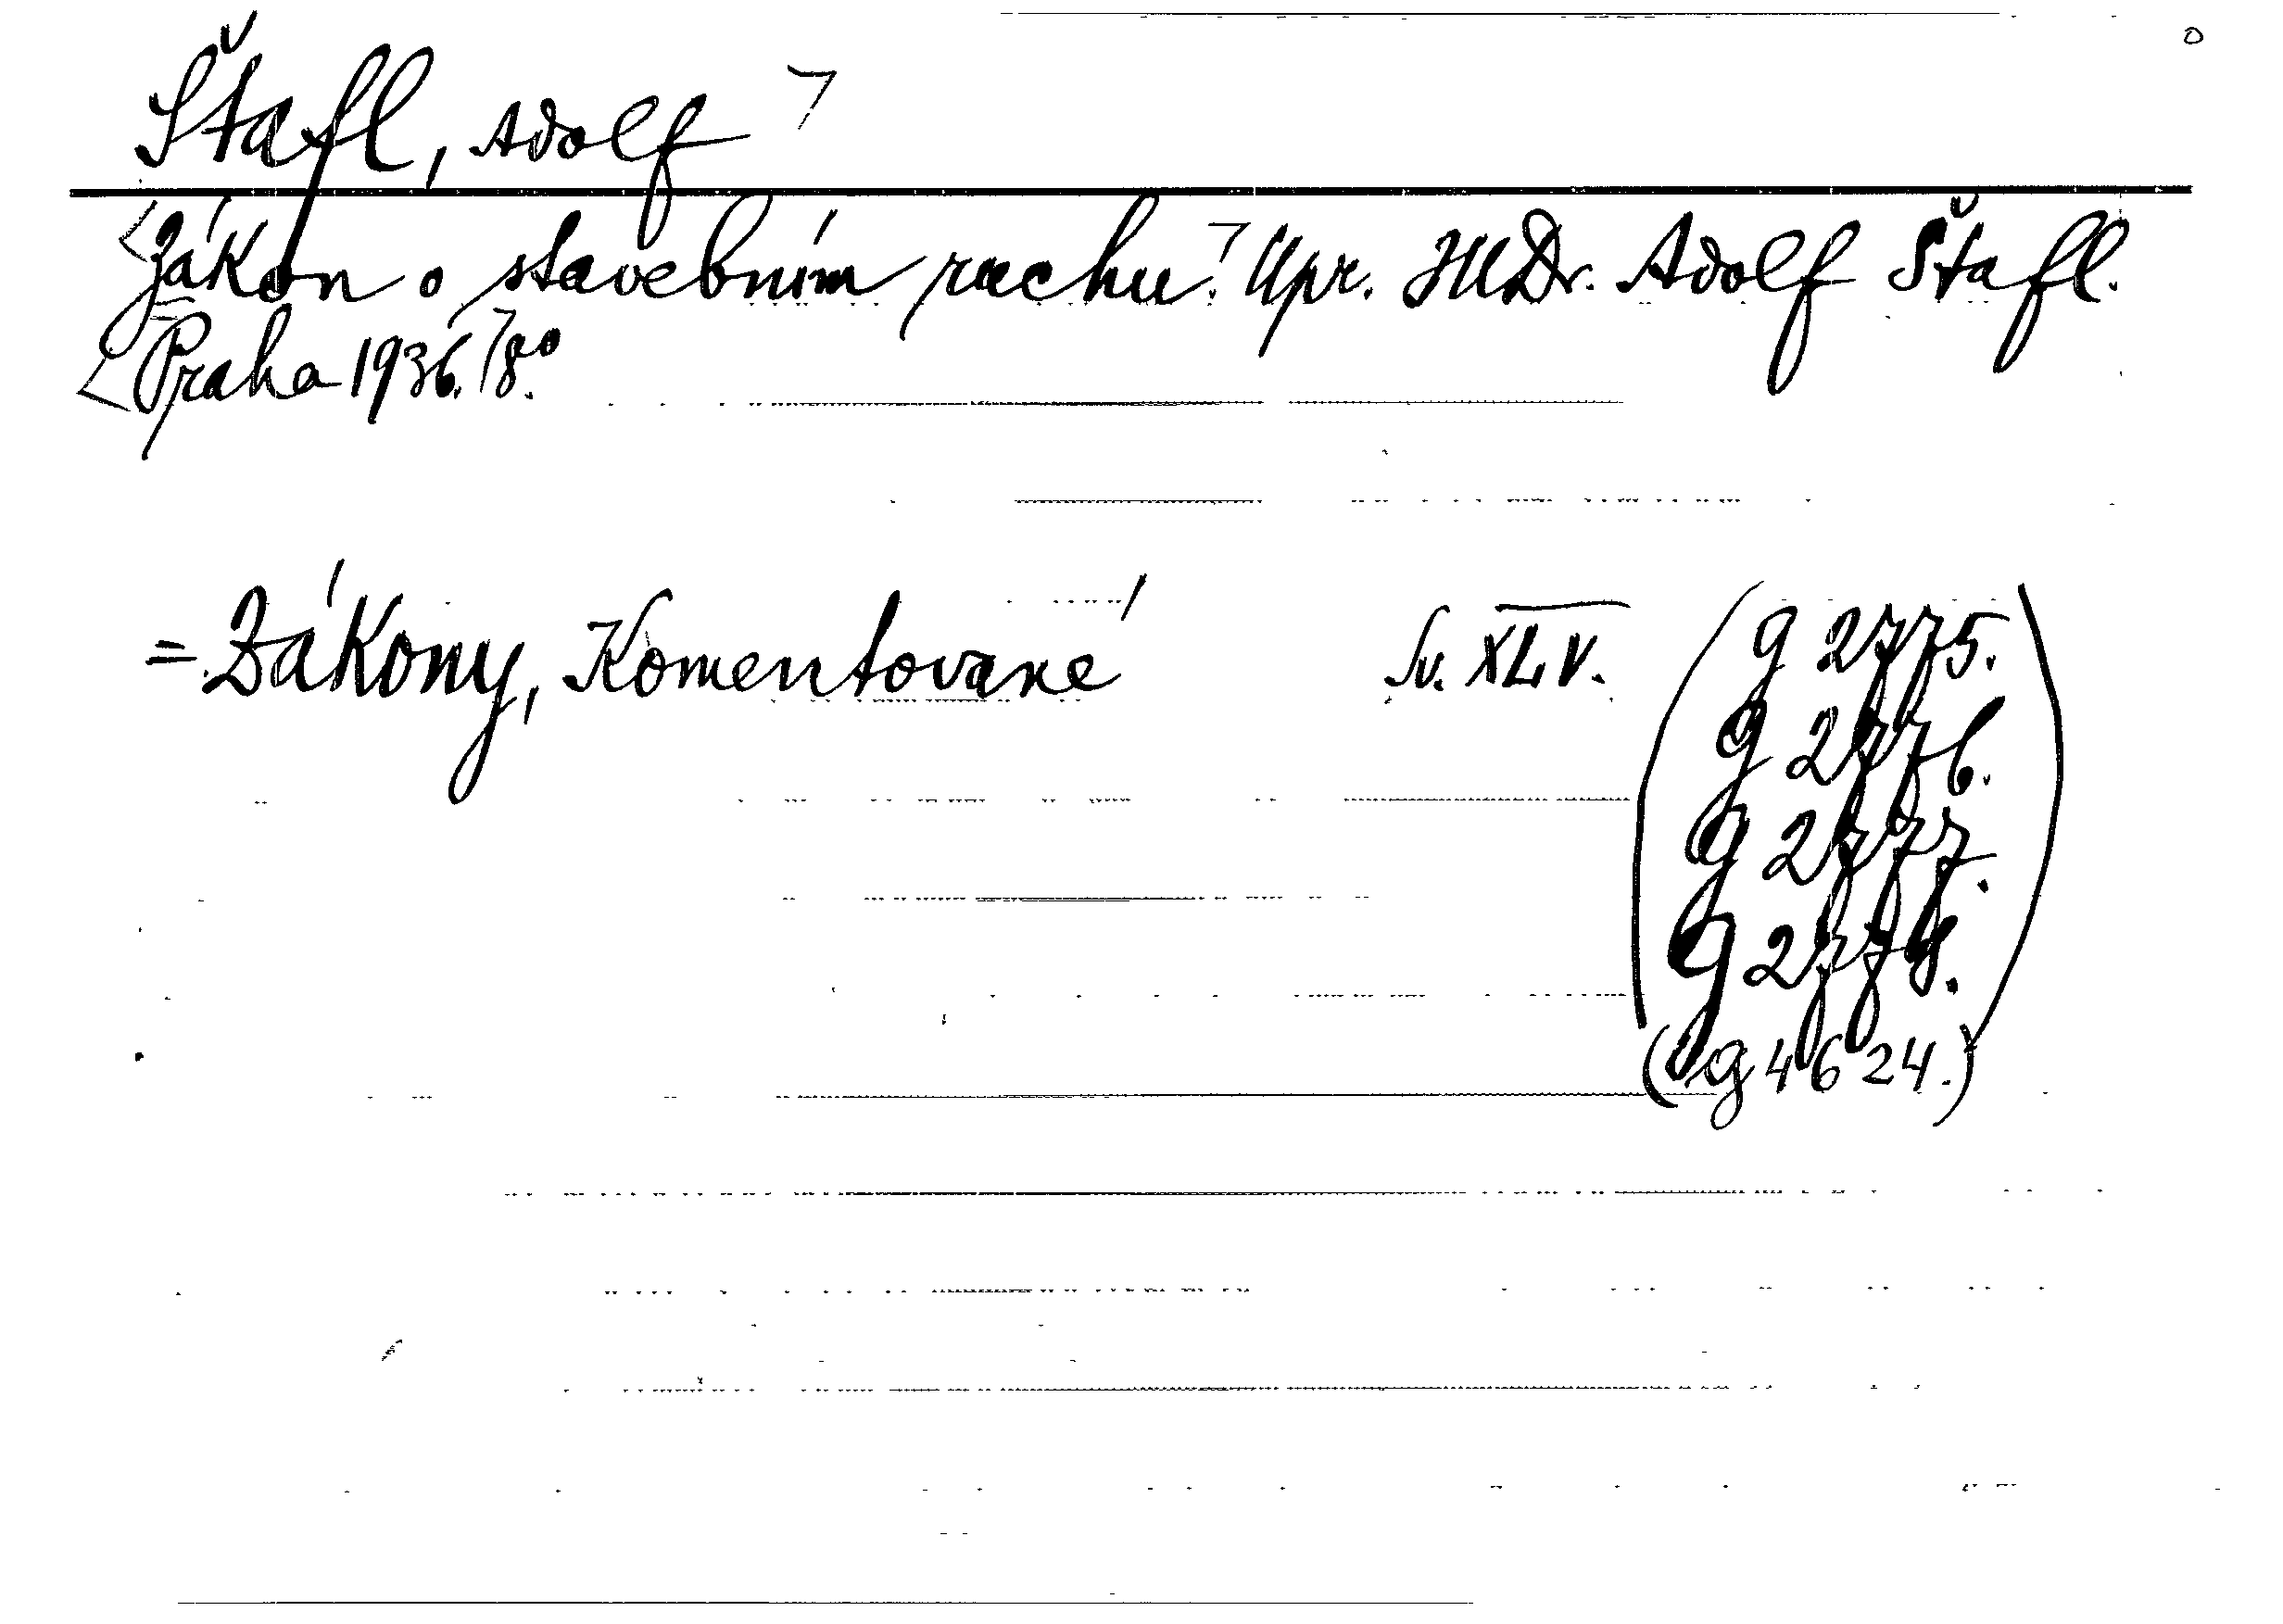 Štafl, Adolf
Zákon o stavebním ruchu. Upr. JUDr. Adolf Štafl.
Praha 1936. 8°.
= Zákony, Komentované Sv. XLV. (g 2775.
g 2776.
g 2777.
g 2778.)
(g 4624.)